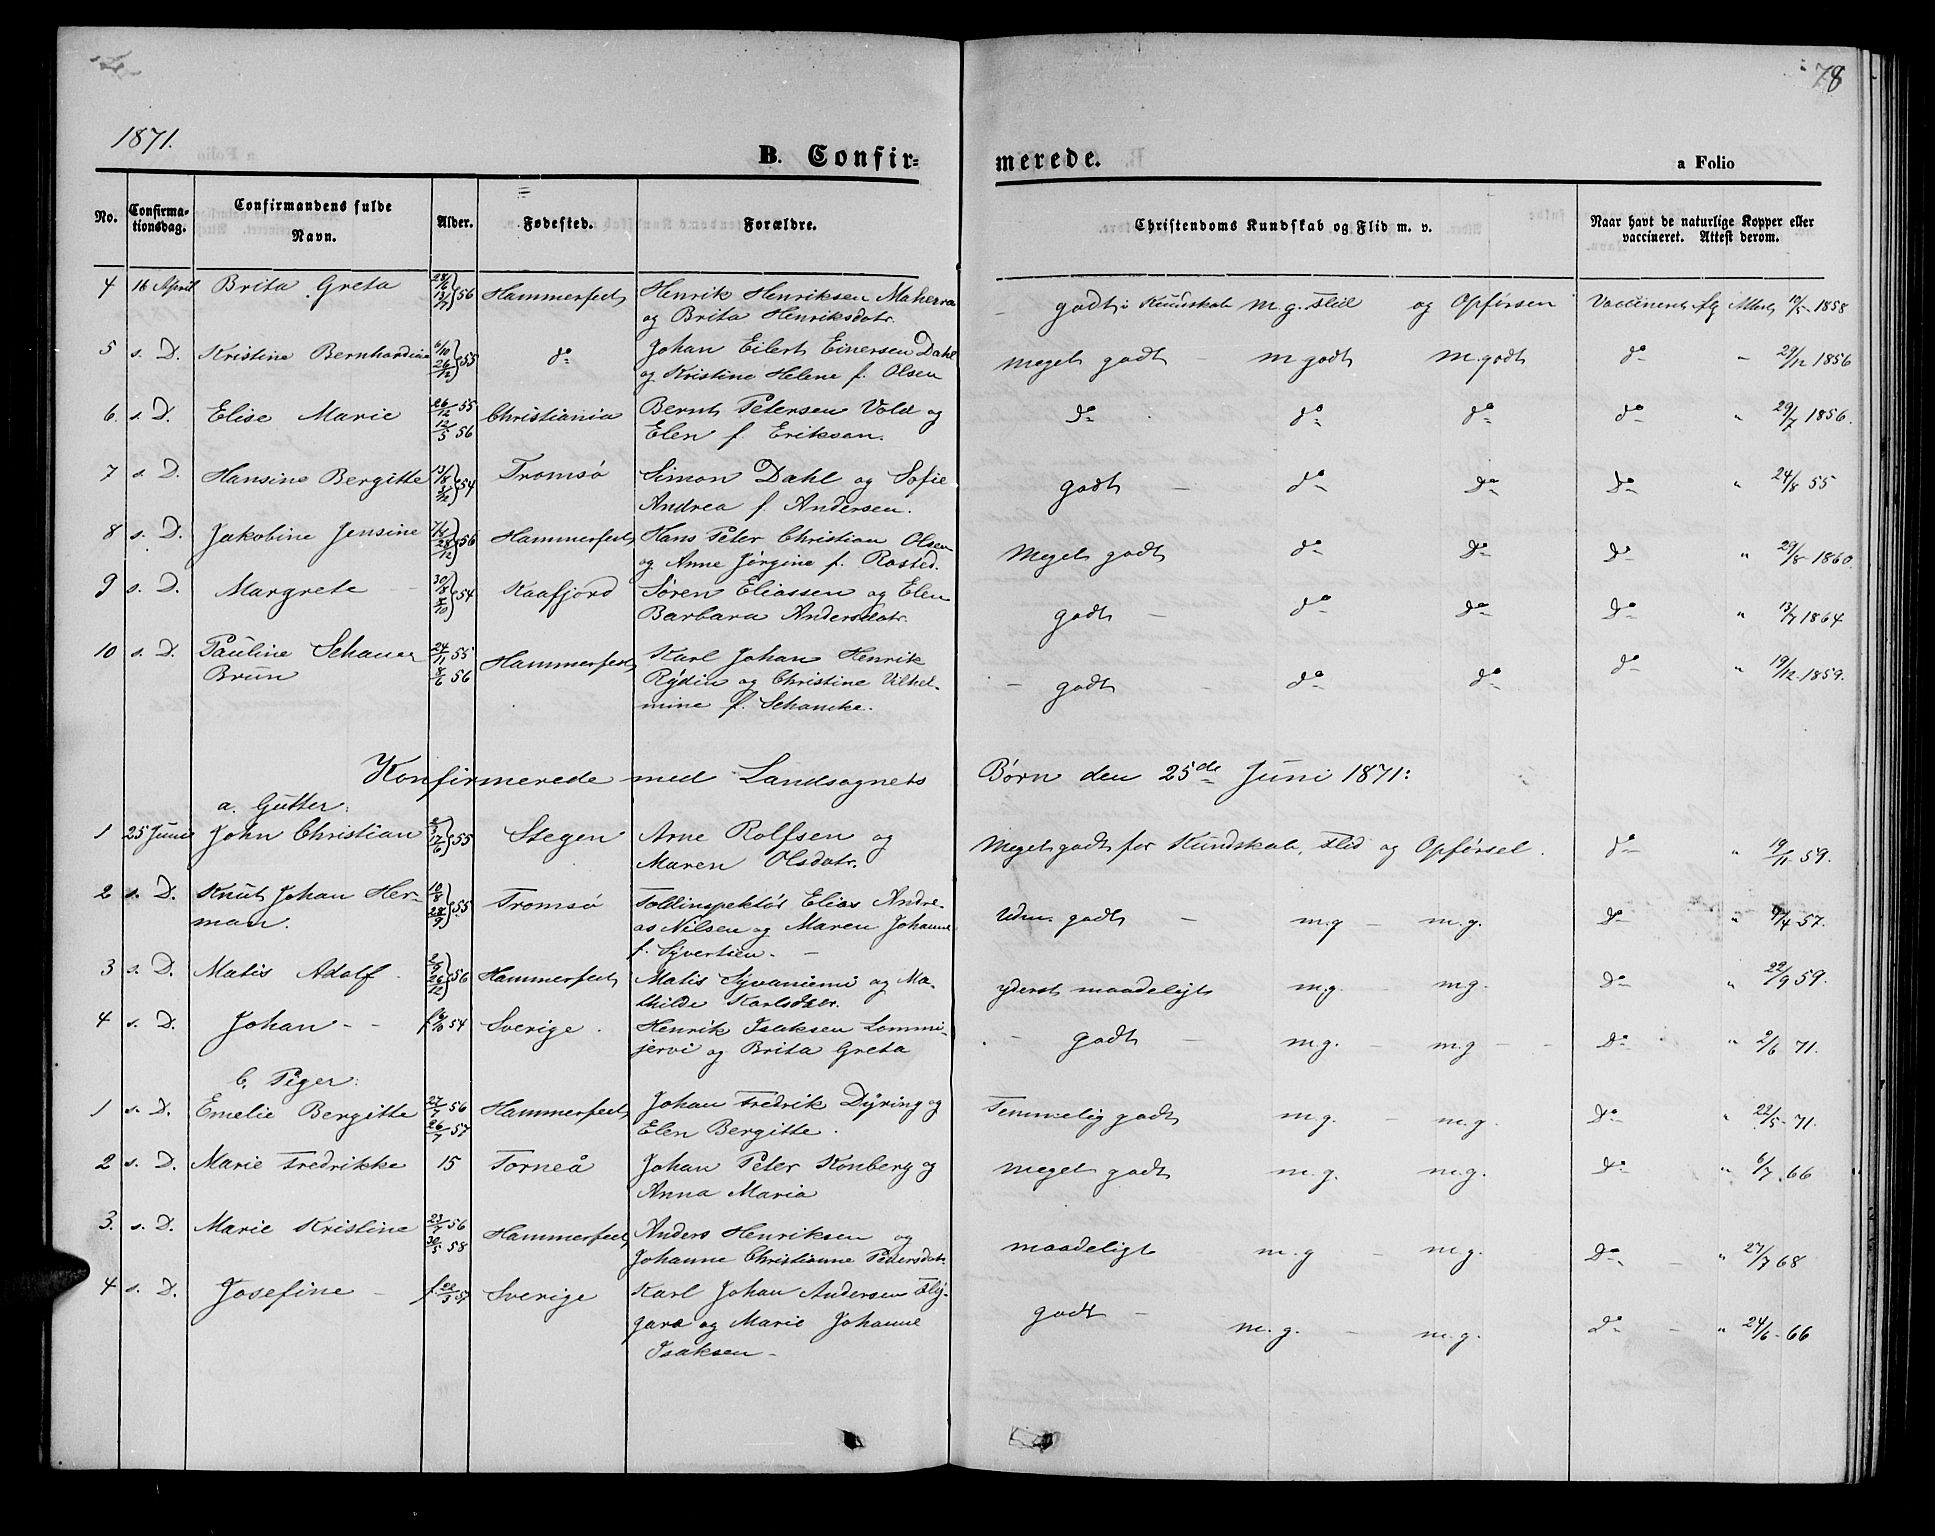 78
1871.
B. Confir-
merede.
a Folio
No. Confirma- Confirmandens fulde Alder. Fødested. Forældre. Christendoms Kundskab og Flid m. v. Naar havt de naturlige Kopper eller
tionsdag. Navn. vaccineret. Attest derom.
4 16 April Brita Greta 56 Hammerfest Henrik Henriksen Maherra godt i Kundskab m.g. Flid og Opførsen Vaccineret flg Attest 1858
og Brita Henriksdatr.
5 s. D. Kristine Bernhardine 6/10 26/12 55 do Johan Eilert Einersen Dahl meget godt - m godt m.godt do " 29/12 1856
og Kristine Helene f. Olsen
6. s. D. Elise Marie 26/12 55 Christiania Bernt Petersen Vold og do do do do " 29/7 1856.
12/5 56 Elen f. Eriksen.
7 s. D. Hansine Bergitte 13/8 3/12 54 Tromsø Simon Dahl og Sofie godt - do do do " 24/8 55
Andrea f. Andersen.
8 s. D. Jakobine Jensine 28/12 56 Hammerfest Hans Peter Christian Olsen Meget godt do do do " 29/8 1860.
og Anne Jørgine f. Rosted.
9 s. D. Margrete 30/8 54 Kaafjord Søren Eliassen og Elen godt do do do " 13/7 1864
Barbara Andersdatr.
10 s. D. Pauline Schauer 24/11 55 Hammerfest Karl Johan Henrik - godt - do do do " 19/12 1859.
Brun 8/6 56 Rydin og Christine Vilhel-
mine f. Schancke.
Konfirmerede med Landsognets Børn den 25de Juni 1871:
a. Gutter:
1 25 Juni John Christian 17/6 55 Stegen Arne Rolfsen og Meget godt for Kundskab, Flid og Opførsel. do " 19/11 59.
Maren Olsdatr.
2 s. D. Knut Johan Her- 10/8 28/9 55 Tromsø Toldinspektør Elias Andre- Udm. godt - m.g - m.g. do " 57.
man. as Nilsen og Maren Johanne
f. Syvertsen. -
3 s. D. Matis Adolf 26/12 56 Hammerfest Matis Syvaniemi og Ma- yderst maadeligt m.g. - m.g. do " 22/9 59.
thilde Karlsdatr.
4 s. D. Johan - - 54 Sverige. Henrik Isaksen Lommi- godt - m.g. - m.g - - do " 2/6 71.
jervi og Brita Greta
b. Piger:
1 s. D. Emelie Bergitte 27/7 56 Hammerfest Johan Fredrik Dyring og Temmelig godt m.g. - m.g. do " 22/5 71.
26/7 57 Elen Bergitte.
2 s. D. Marie Fredrikke 15 Torneå Johan Peter Konberg og meget godt m.g. m.g. do " 6/7 66
Anna Maria
3. s. D. Marie Kristine 23/7 56 Hammerfest Anders Henriksen og maadeligt m.g - m.g. do - " 27/7 68
30/5 58 Johanne Christianne Pedersdatr.
4 s. D. Josefine - 57 Sverige Karl Johan Andersen Fly- godt - m.g. - m.g. do - " 24/6 66
gare og Marie Johanne
Isaksen -